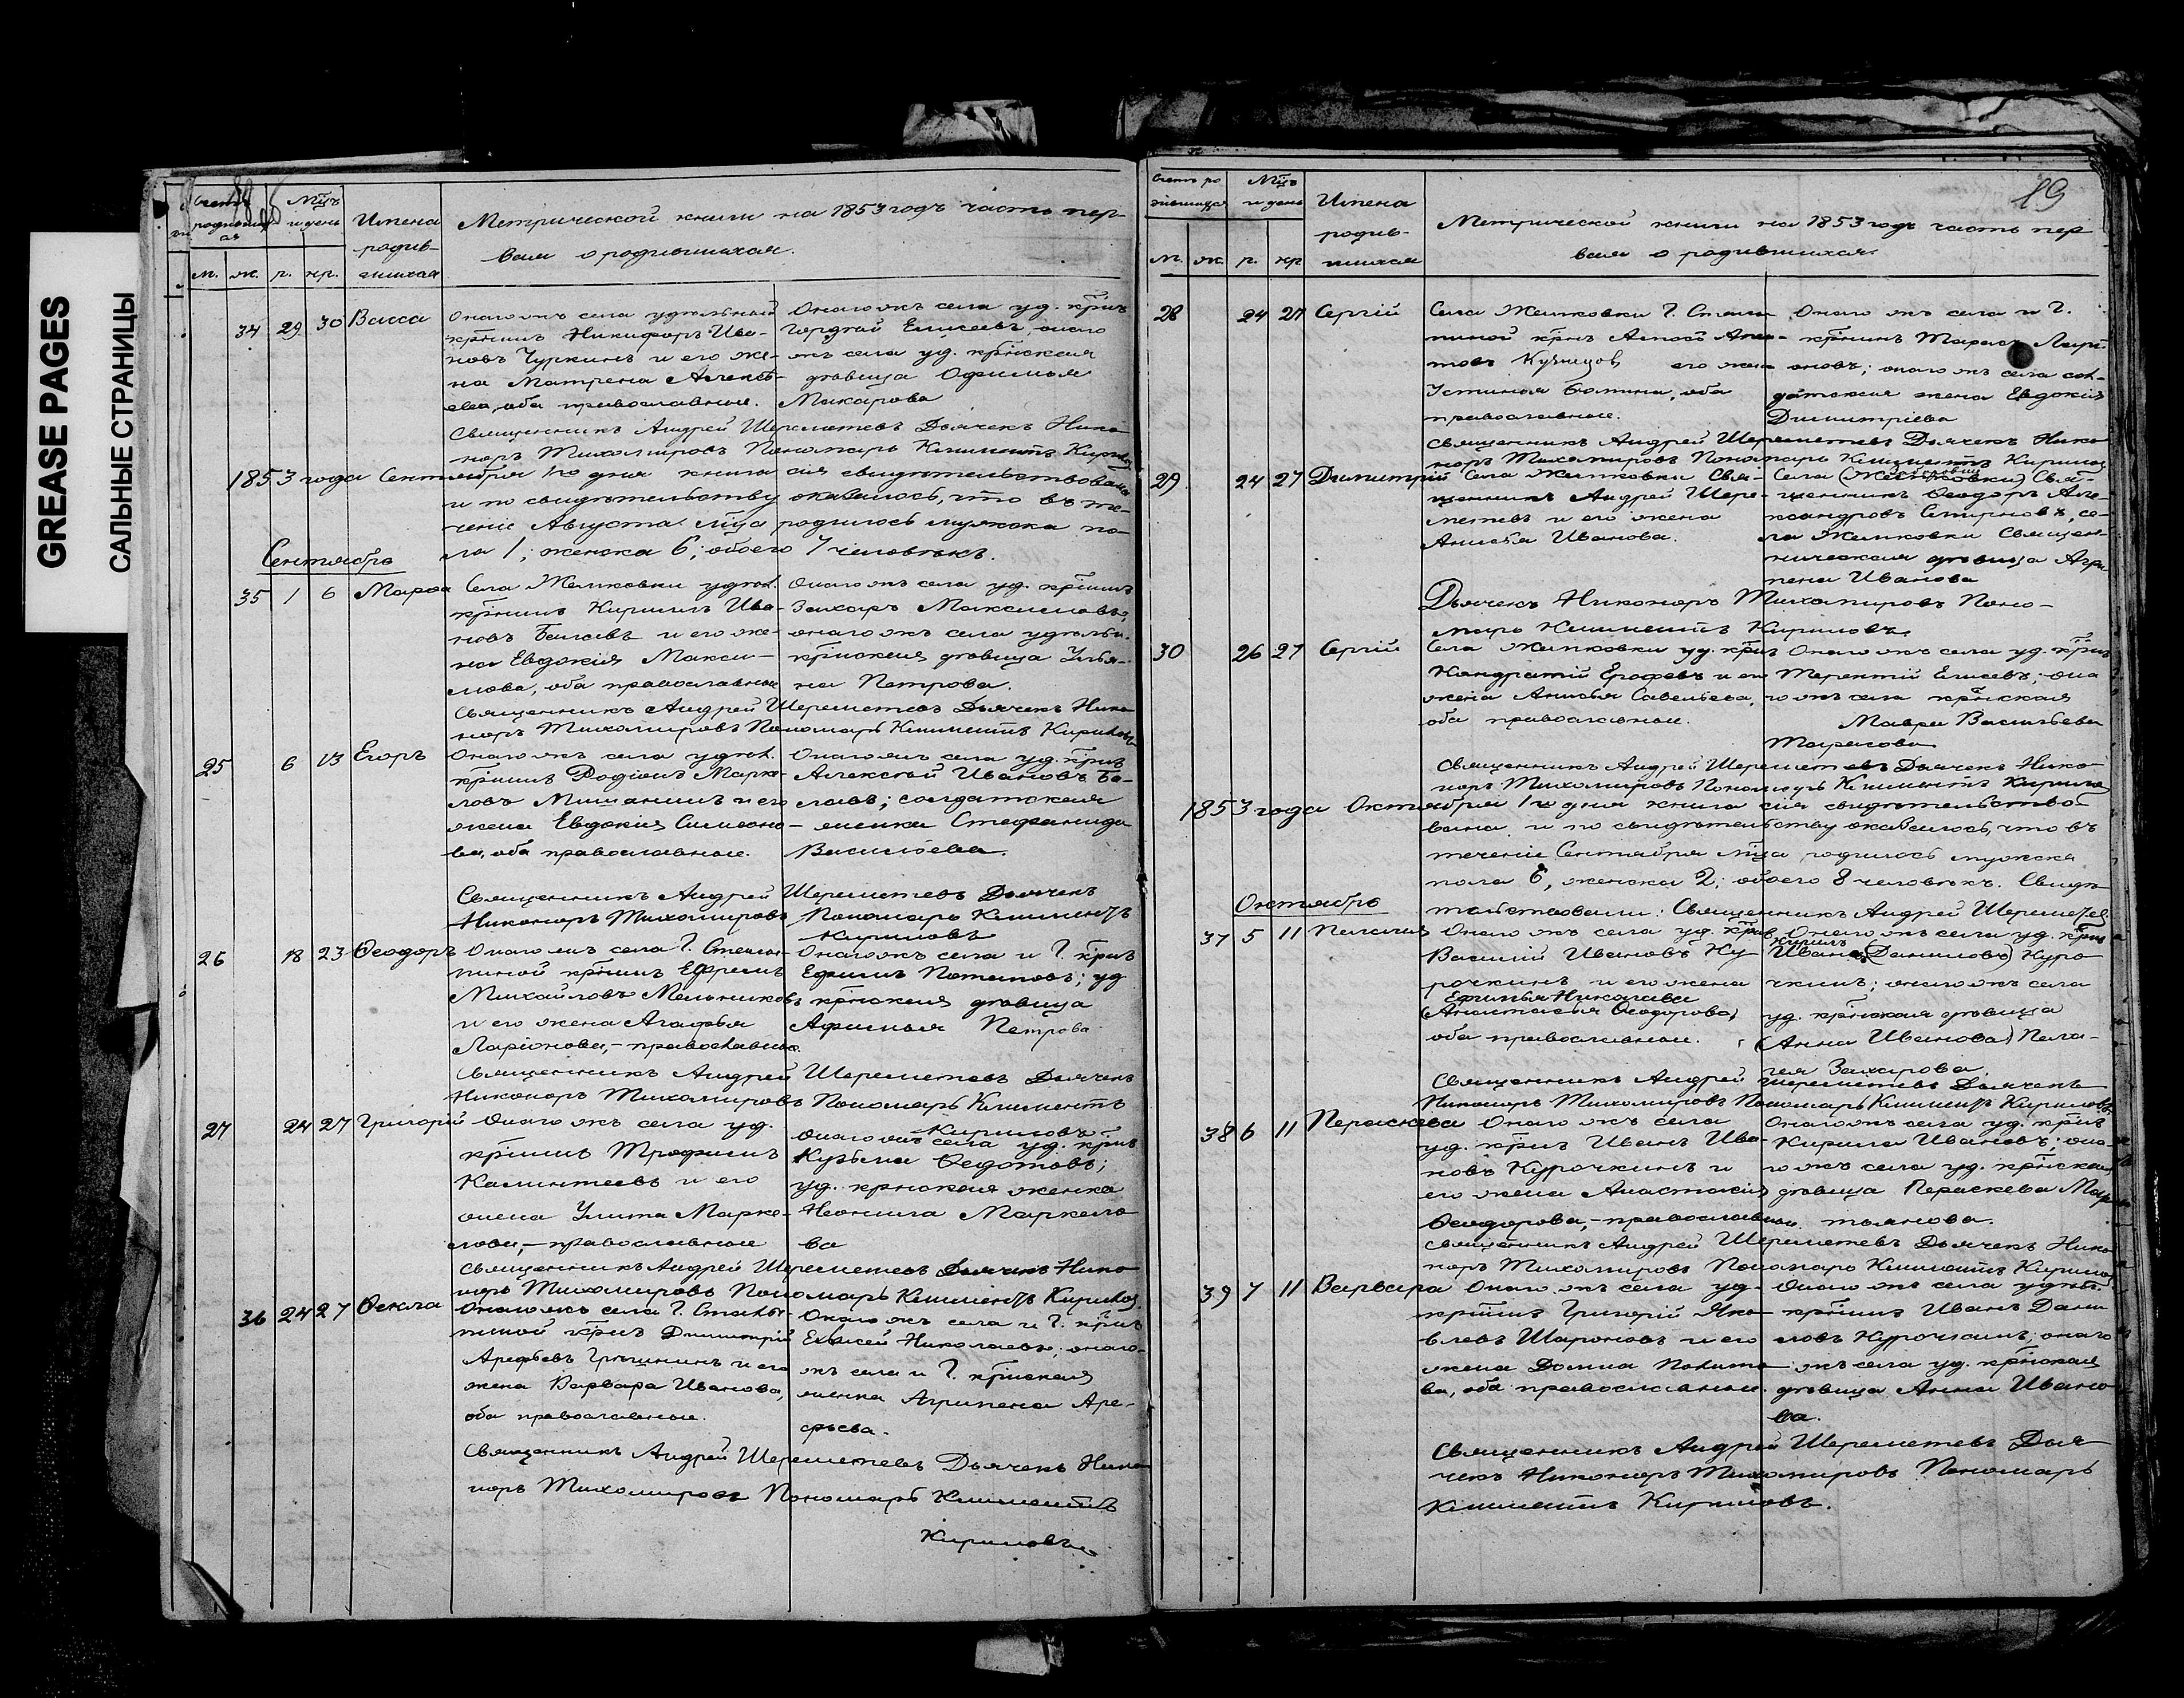 GREASE PAGES
САЛЬНЫЕ СТРАНИЦЫ
Имена
родив-
шихся
Метрической книги на 1853 годъ часть пер-
вая о родившихся.
м. ж. р. кр.
34 29 30 Васса
Онаго жъ села удѣльный
крн̃инъ Никифоръ Ива-
новъ Чуркинъ и его же-
на Матрена Алексѣ-
ева, оба православные.
Онаго жъ села уд. крн̃нъ
Гордѣй Елисеевъ, онаго
жъ села уд. крн̃ская
дѣвица Офимья
Макарова
Священникъ Андрей Шереметевъ Дьячекъ Нико-
норъ Тихомировъ Пономарь Климентъ Кирилов
1853 года Сентября 1го дня книга сія свидѣтельствована
и по свидѣтельству оказалось, что въ те-
ченіе Августа мц̃а родилось мужска по-
ла 1; женска 6; обоего 7 человѣкъ.
Сентябрь
35 1 6 Марѳа
Села Жемковки удѣл.
крн̃инъ Кирилъ Ива-
новъ и его же-
на Евдокія Макси-
мова, оба православные
Онаго жъ села уд. крн̃инъ
Захаръ Максимовъ;
онаго жъ села удѣльн.
крн̃ская дѣвица Улья-
на Петрова.
Священникъ Андрей Шереметевъ Дьячекъ Нико-
норъ Тихомировъ Пономарь Климентъ Кириловъ
25 6 13 Егоръ
Онаго жъ села удѣл.
крн̃инъ Родіонъ Марке-
ловъ Мишанинъ и его
жена Евдокія Симеоно-
ва, оба православные.
Онаго жъ села уд. крн̃нъ
Алексѣй Ивановъ Бе-
ловъ; солдатская
женка Стефанида
Васильева.
Священникъ Андрей Шереметевъ Дьячекъ
Никоноръ Тихомировъ Пономарь Климентъ
Кириловъ
26 18 23 Ѳеодоръ
Онаго жъ села Г.
крн̃инъ Ефремъ
Михайловъ Мельниковъ
и его жена Агафья
Ларіонова, – православные.
Онаго жъ села и Г. крн̃нъ
Ефимъ Потаповъ; уд
крн̃ская дѣвица
Афимья Петрова.
Священникъ Андрей Шереметевъ Дьячекъ
Никоноръ Тихомировъ Пономарь Климентъ
Кириловъ
27 24 27 Григорій
Онаго жъ села уд.
крн̃инъ Трофимъ
Калинтеевъ и его
жена Улита Марке-
лова, – православные
Онаго жъ села уд. крн̃нъ
Кузьма Ѳедотовъ;
уд. крн̃ская женка
Неонила Маркело-
ва
Священникъ Андрей Шереметевъ Дьячекъ Нико-
норъ Тихомировъ Пономарь Климентъ Кирилов
36 24 27 Ѳекла
Онаго жъ села Г.
крн̃нъ Димитрій
Арефьевъ и его
жена Варвара Иванова,
оба православные.
Онаго жъ села и Г. крн̃нъ
Елисей Николаевъ; онаго-
жъ села и Г. крн̃ская
женка Агрипена Аре-
фьева.
Священникъ Андрей Шереметевъ Дьячекъ Нико-
норъ Тихомировъ Пономарь Климентъ
Кириловъ
89
Счетъ ро
дившихся
Мц̃ъ
и день
Имена
родив-
шихся
Метрической книги на 1853 годъ часть пер
вая о родившихся.
м. ж. р. кр
28 24 27 Сергій
Села Жемковки Г.
крн̃нъ
Кузнецов его жена
Устинья оба
православные.
Онаго жъ села и Г.
крн̃нинъ Тарасъ Лари-
оновъ; онаго жъ села сол-
датская жена Евдокія
Димитріева
Священникъ Андрей Шереметевъ Дьячекъ Нико-
норъ Тихомировъ Пономарь Климентъ Кирилов
29 24 27 Димитрій
Села Жемковки Свя-
щенникъ Андрей Шере-
метевъ и его жена
Анисья Иванова.
Села (Жемковки) Свя-
щенникъ Ѳеодоръ Але-
ксандровъ Смирновъ, се-
ла Жемковки Священ-
ническая дѣвица Агри-
пена Иванова
Дьячекъ Никоноръ Тихомировъ Поно-
марь Климентъ Кириловъ.
30 26 27 Сергій
Села Жемковки уд. крн̃нъ
Кондратій Ерофеевъ и его
жена Анисья Савельева,
оба православные.
Онаго жъ села уд. крн̃нъ
Терентій Елисеевъ; она-
го жъ села крн̃ская
Мавра Васильева
Тарасова
Священникъ Андрей Шереметевъ Дьячекъ Нико-
норъ Тихомировъ Пономарь Климентъ Кирилов
1853 года Октября 1го дня книга сія свидѣтельство-
вана, и по свидѣтельству оказалось, что въ
теченіе Сентября мц̃а родилось мужска
пола 6, женска 2; обоего 8 человѣкъ. Свидѣ-
тельствовали: Священникъ Андрей Шереметев
Октябрь
37 5 11 Пелагия
Онаго жъ села уд. крн̃нъ
Василій Ивановъ Ку-
рочкинъ и его жена
Ефимья Николаева
(Анастасья Ѳеодорова)
оба православные.
Онаго жъ села уд. крн̃нъ
Кирилъ
Иванъ (Даниловъ) Куро-
чкинъ; онаго жъ села
уд. крн̃ская дѣвица
(Анна Иванова) Пела-
гея Захарова.
Священникъ Андрей Шереметевъ Дьячекъ
Никоноръ Тихомировъ Пономарь Климентъ Кириловъ
38 6 11 Пераскева
Онаго жъ села
уд. крн̃нъ Иванъ Ива-
новъ Курочкинъ и
его жена Анастасія
Ѳеодорова, – православные.
Онаго жъ села уд. крн̃нъ
Кирила Ивановъ; она-
го жъ села уд. крн̃ская
дѣвица Пераскева Мар-
тьянова.
Священникъ Андрей Шереметевъ Дьячекъ Нико-
норъ Тихомировъ Пономарь Климентъ Кирилов
39 7 11 Варвара
Онаго жъ села уд.
крн̃инъ Григорій Яко-
влевъ Шароновъ и его
жена Домна
ва, оба православные.
Онаго жъ села удѣл.
крн̃инъ Иванъ Дани-
ловъ Курочкинъ; онаго
жъ села уд. крн̃ская
дѣвица Анна Ивано-
ва.
Священникъ Андрей Шереметевъ Дья-
чекъ Никоноръ Тихомировъ Пономарь
Климентъ Кириловъ.